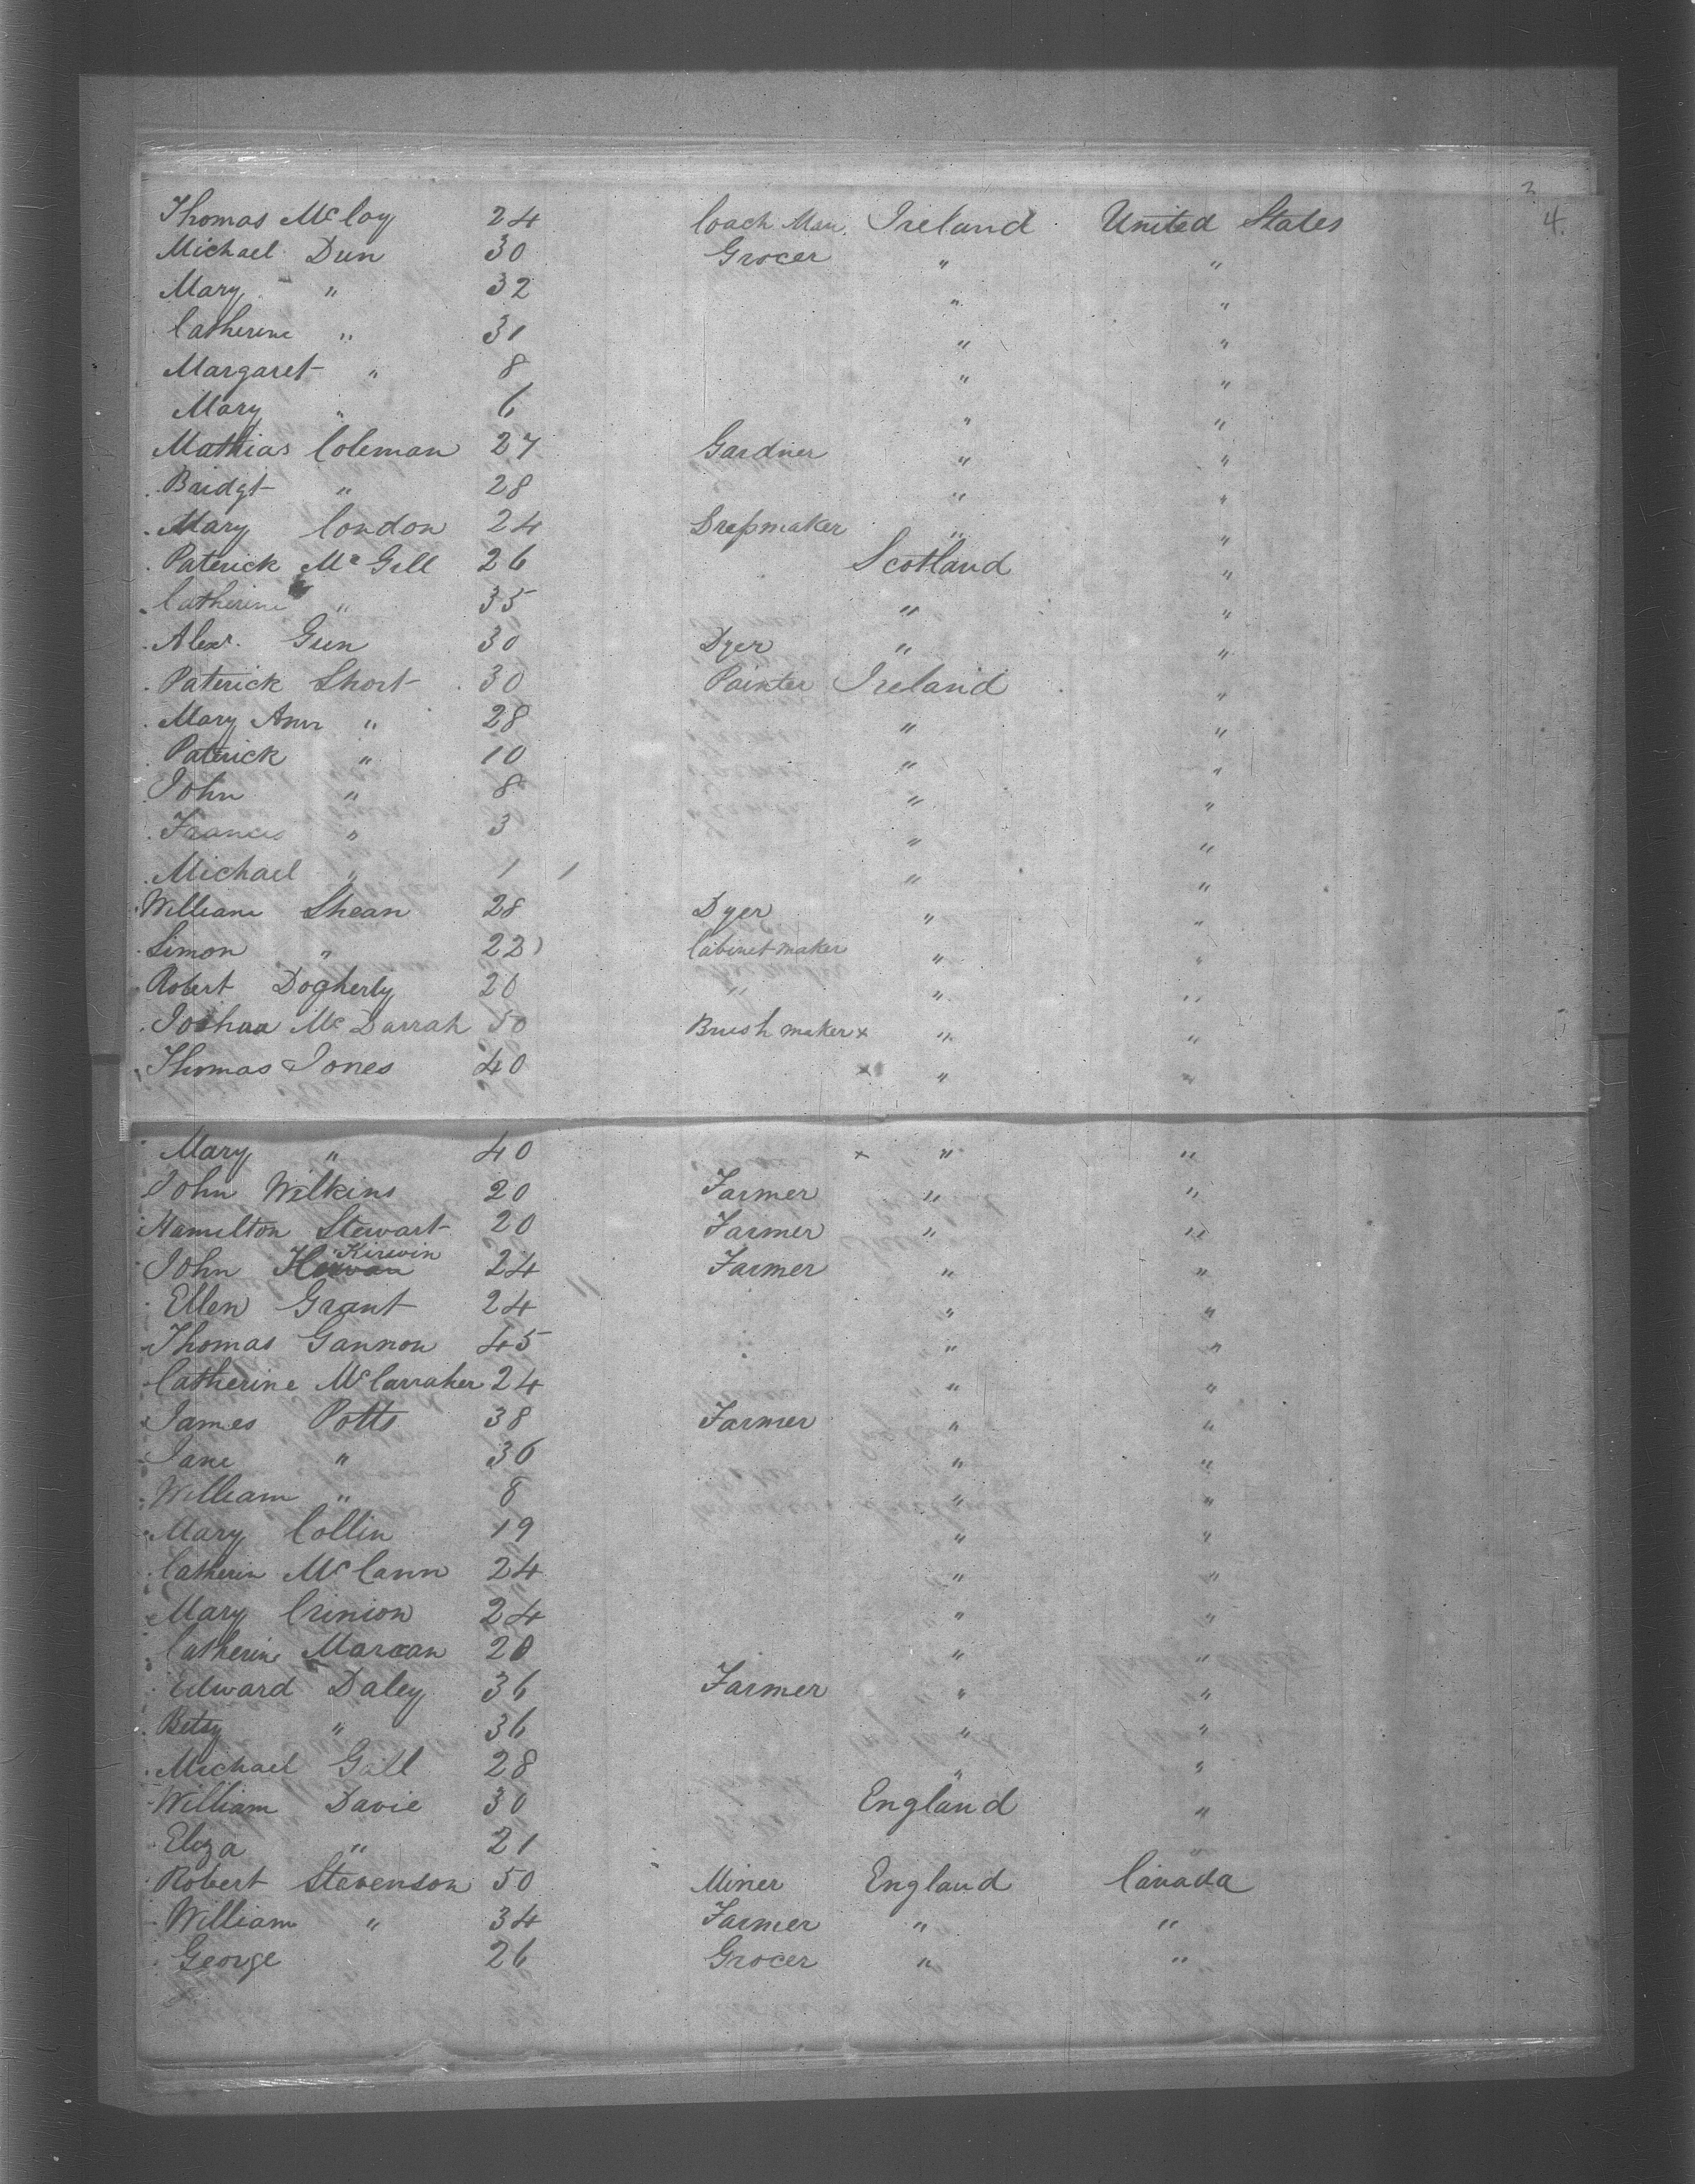 3
4.
Thomas McCloy 24 Coach Man. Ireland United States
Michael Dun 30 Grocer " "
Mary " 32 " "
Catherine " 31 " "
Margaret " 8 " "
Mary " 6 " "
Mathias Coleman 27 Gardner " "
Bridgt " 28 " "
Mary Condon 24 Dressmaker " "
Paterick McGill 26 Scotland "
Catherine " 35 " "
Alexr. Gun 30 Dyer " "
Paterick Short 30 Painter Ireland "
Mary Ann " 28 " "
Paterick " 10 " "
John " 8 " "
Francis " 3 " "
Michael " 1 1 " "
William Shean 28 Dyer " "
Simon " 22 Cabinet maker " "
Robert Dogherty 20 " " "
Joshua McDarrah 50 Brush maker x " "
Thomas Jones 40 x " "
Mary " 40 x " "
John Wilkins 20 Farmer " "
Hamilton Stewart 20 Farmer " "
Kirwin
John 24 Farmer " "
Ellen Grant 24 " "
Thomas Gannon 45 " "
Catherine McCarraher 24 " "
James Potts 38 Farmer " "
Jane " 36 " "
William " 8 " "
Mary Collin 19 " "
Catherin McCann 24 " "
Mary Crinion 24 " "
Catherine Marcan 20 " "
Edward Daley 36 Farmer " "
Betsy " 36 " "
Michael Gall 28 " "
William Davie 30 England "
Eliza " 21 "
Robert Stevenson 50 Miner England Canada
William " 34 Farmer " "
George 26 Grocer " "